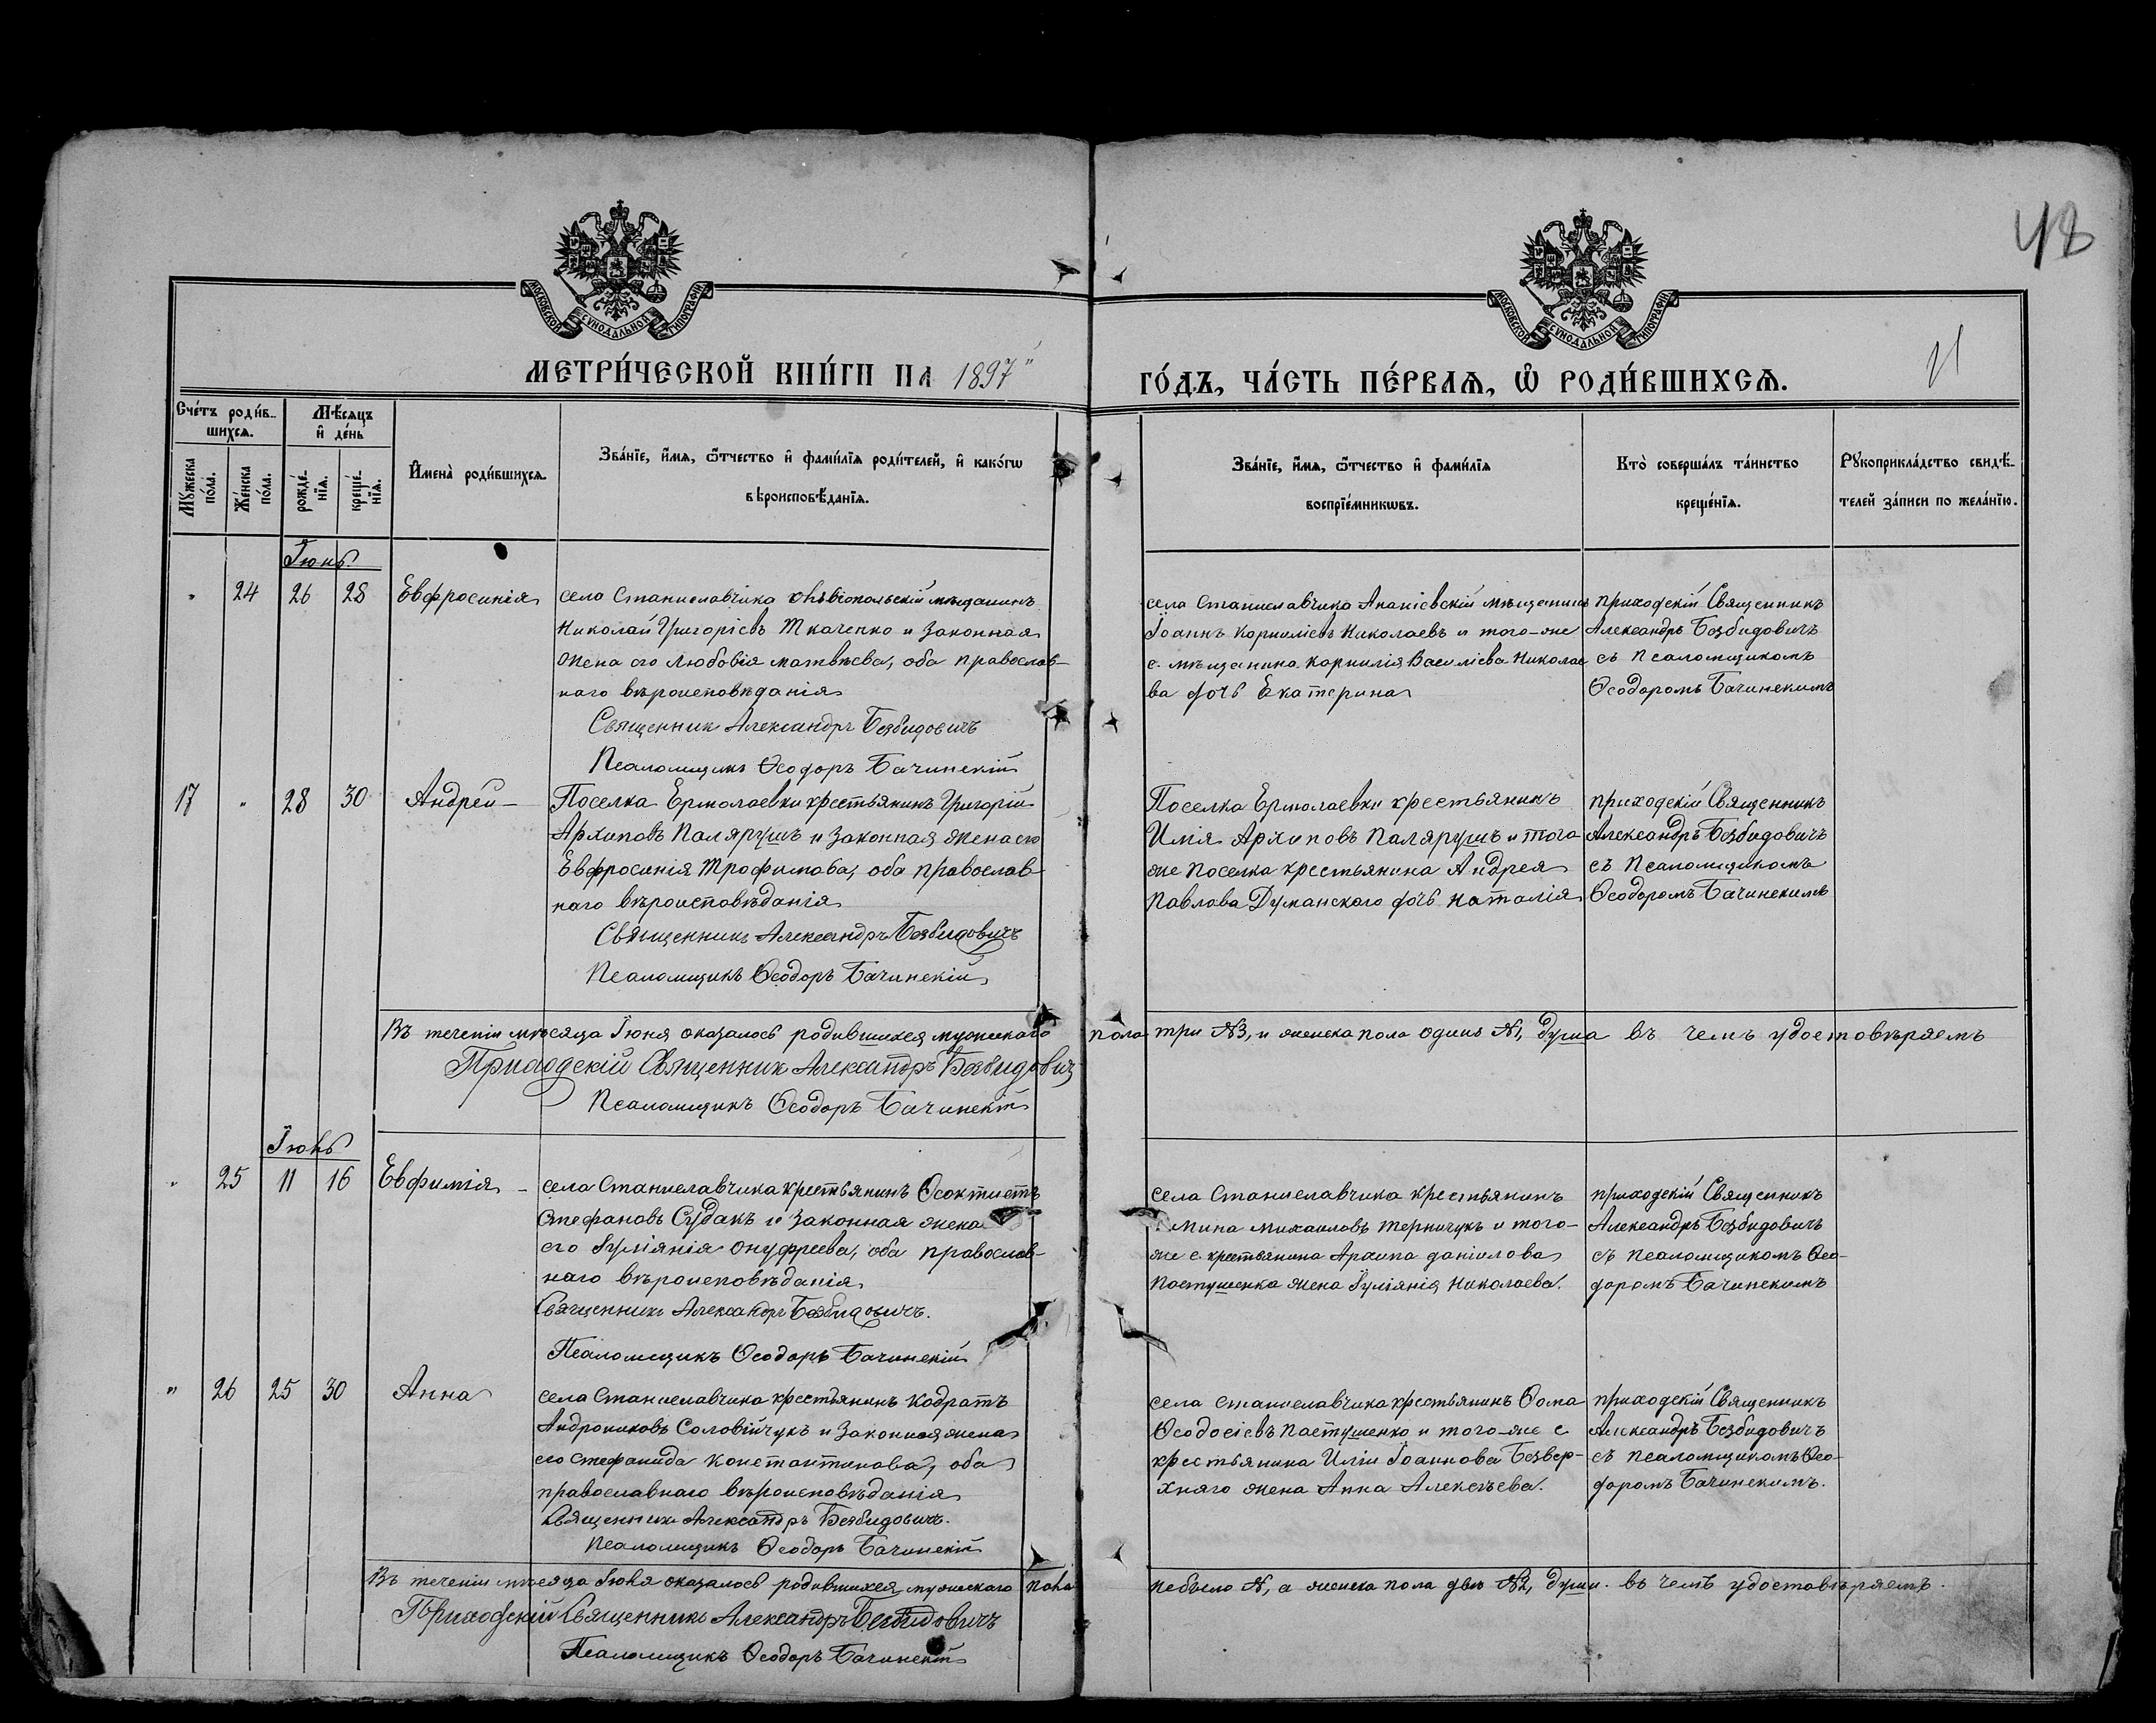 48
МОСКОВСКОЙ СѴНОДАЛЬНОЙ ТИПОГРАФІИ
МОСКОВСКОЙ СѴНОДАЛЬНОЙ ТИПОГРАФІИ
МЕТРИ́ЧЕСКОЙ КНИ́ГИ НА 1897
ГО́ДЪ, ЧА́СТЬ ПЕ́РВАѦ, Ѡ҆ РОДИ́ВШИХСѦ.
Сче́тъ роди́в-
шихсѧ.
Мѣ́сѧцъ
и҆ де́нь
Мꙋ́жеска
по́ла.
Же́нска
по́ла.
рожде́-
нїѧ.
креще́-
нїѧ.
И҆мена̀ роди́вшихсѧ.
Зва́нїе, и҆́мѧ, ѻ҆́тчество и҆ фами́лїѧ роди́телей, и҆ како́гѡ
вѣроисповѣ́данїѧ.
Зва́нїе, и҆́мѧ, ѻ҆́тчество и҆ фами́лїѧ
воспрїе́мникѡвъ.
Кто̀ соверша́лъ та́инство
креще́нїѧ.
Рꙋкоприкла́дство свидѣ́-
телей за́писи по жела́нїю.
Іюнь.
" 24 26 28 Евфросинія
села Станиславчика мѣщанинъ
Николай Григоріевъ Ткаченко и законная
жена его Любовія Матвѣева, оба православ-
наго вѣроисповѣданія
Священник Александръ Безбидовичъ
Псаломщикъ Ѳеодоръ Бачинскій
села Станиславчика Ананіевскій мѣщанинъ
Іоаннъ Корниліевъ Николаевъ и того-же
с. мѣщанина Корнилія Василіева Николае
ва дочь Екатерина
приходскій Священникъ
Александръ Безбидовичъ
съ Псаломщикомъ
Ѳеодоромъ Бачинскимъ
17 " 28 30 Андрей
Поселка Ермолаевки крестьянинъ Григорій
Архиповъ Паляруш и законная жена его
Евфросинія Трофимова, оба православ-
наго вѣроисповѣданія
Священникъ Александръ Безбидовичъ
Псаломщикъ Ѳеодоръ Бачинскій
Поселка Ермолаевки крестьянинъ
Илія Архиповъ Палярушъ и того
же поселка крестьянина Андрея
Павлова Думанского дочь Наталія
приходскій Священникъ
Александръ Безбидовичъ
съ Псаломщикомъ
Ѳеодоромъ Бачинскимъ
Въ теченіи мѣсяца Іюня оказалось родившихся мужескаго пола три №3, и женска пола одинъ №1, душа въ чемъ удостовѣряемъ
Приходскій Священник Александръ Безбидович
Псаломщикъ Ѳеодоръ Бачинскій
" 25 11 16 Евфимія
села Станиславчика крестьянинъ Ѳеоктистъ
Стефановъ Судакъ и законная жена
его Іуліянія Онуфреева, оба православ-
наго вѣроисповѣданія
Священникъ Александръ Безбидовичъ.
Псаломщикъ Ѳеодоръ Бачинскій
села Станиславчика крестьянинъ
Мина Михаиловъ Терничукъ и того-
же с. крестьянина Архипа Даніилова
Пастушенка жена Іуліянія Николаева.
приходскій Священникъ
Александръ Безбидовичъ
съ псаломщикомъ Ѳео-
доромъ Бачинскимъ
" 26 25 30 Анна
села Станиславчика крестьянинъ Кодратъ
Андрониковъ Соловійчукъ и законная жена
его Стефанида Константинова, оба
православнаго вѣроисповѣданія
Священникъ Александръ Безбидовичъ.
Псаломщикъ Ѳеодоръ Бачинскій
села Станиславчика крестьянинъ Ѳома
Ѳеодосіевъ Пастушенко и того-же с
крестьянина Иліи Іоаннова Безвер-
хняго жена Анна Алексѣева.
приходскій Священникъ
Александръ Безбидовичъ
съ псаломщикомъ Ѳео-
доромъ Бачинскимъ.
Въ теченіи мѣсяца оказалось родившихся мужескаго пола небыло №, а женска пола двѣ №2, души. въ чемъ удостовѣряемъ.
Приходскій Священникъ Александръ Безбидовичъ
Псаломщикъ Ѳеодоръ Бачинскій